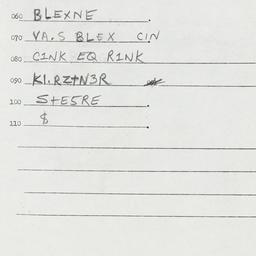 060 BLEXNE
070 VA.S BLEX CIN
080 CINK EQ RINK
090 KI.RZTN3R
100 STE5RE
110 $